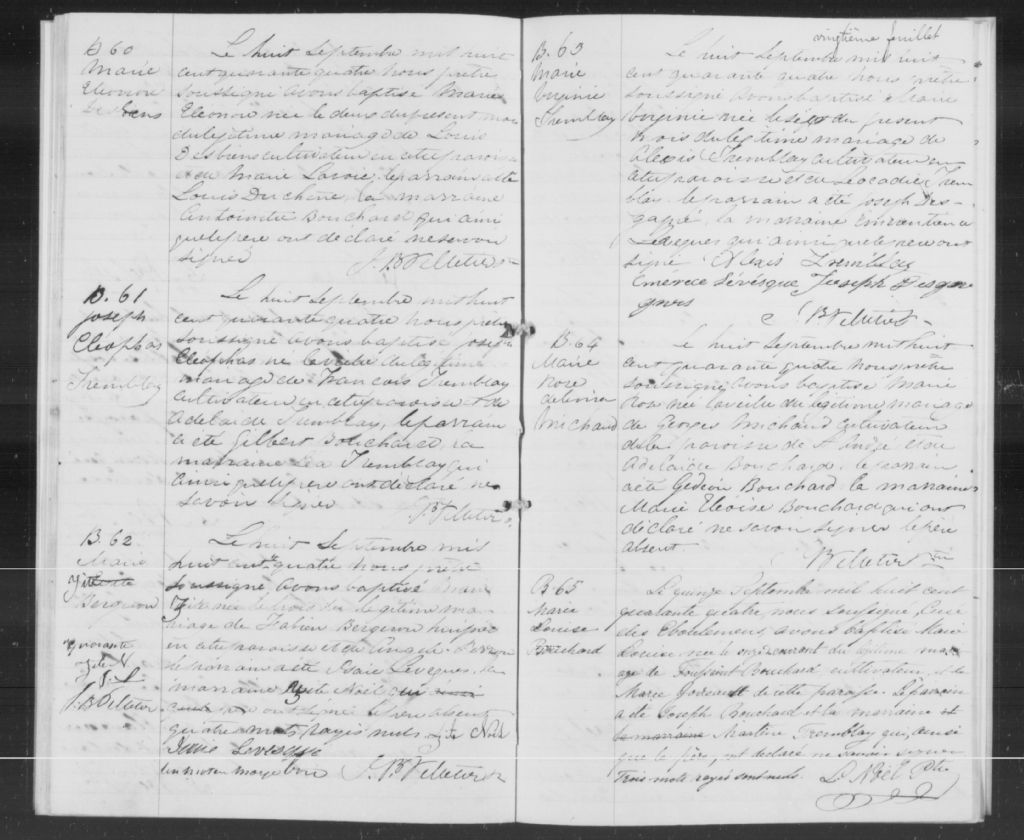 B 60
Marie
Eleonore
Desbiens
Le huit Septembre mil huit
cent quarante quatre nous prêtre
soussigné avons baptisé Marie
Eleonore née le deux du présent mois
du légitime mariage de Louis
Desbiens cultivateur en cette paroisse
et de Marie Lavoie. le parrain a été
Louis Duchene, la marraine
Bouchard qui ainsi
que le père ont déclaré ne savoir
signer
J. B Pelletier
B. 61
Joseph
Cléophas
Tremblay
Le huit Septembre mil huit
cent quarante quatre nous prêtre
soussigné avons baptisé Joseph
Cléophas né la veille du légitime
mariage de François Tremblay
cultivateur en cette paroisse et de
Adelaide Tremblay, le parrain
a été Gilbert Bouchard, la
marraine Tremblay qui
ainsi que le père ont déclaré ne
savoir signer
B Pelletier
B. 62
Marie
Bergeron
J. B Pelletier
Le huit Septembre mil
huit cent quatre nous prêtre
soussigné avons baptisé Marie
née le trois du légitime ma-
riage de Fabien Bergeron
en cette paroisse et de
le parrain a été Isaie Levesque, la
marraine Noël qui
ont signé le père absent
quatre mots rayés nuls Noël
Levesque
un mot en marge bon J. B Pelletier
vingtième feuillet
B. 63
Marie
Virginie
Tremblay
Le huit Septembre mil huit
cent quarante quatre nous prêtre
soussigné avons baptisé Marie
Virginie née le sept du présent
mois du légitime mariage de
Alexis Tremblay cultivateur en
cette paroisse et de Léocadie Trem
blay. le parrain a été Joseph Des-
gagné, la marraine
Levesques qui ainsi que le père ont
signé Alexis Tremblay
Emérence Lévesque Joseph Desgag
gnés
B Pelletier
B. 64
Marie
Rose
de Lima
Michaud
Le huit Septembre mil huit
cent quarante quatre nous prêtre
soussigné avons baptisé Marie
Rose née la veille du légitime mariage
de Georges Michaud cultivateur
de la paroisse de St et de
Adelaide Bouchard. le parrain
a été Gédéon Bouchard. la marraine
Marie Eloise Bouchard qui ont
déclaré ne savoir signer le père
absent
B Pelletier
B 65
Marie
Louise
Bouchard
Le quinze Septembre mil huit cent
quarante quatre nous soussigné, Curé
des Eboulements, avons baptisé Marie
Louise née le onze courant du légitime ma-
riage de Toussaint Bouchard cultivateur, et de
Marie de cette paroisse. Le parrain
a été Joseph Bouchard et la marraine et
la marraine Martine Tremblay qui, ainsi
que le père, ont déclaré ne savoir signer
Trois mots rayés sont nuls. L. Noël Ptre